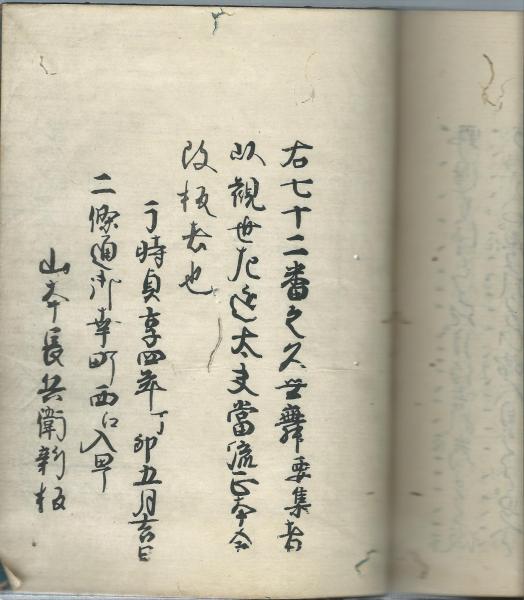 右七十二番之久世舞委集者
以観世左近太夫當流正本令
改板者也
于時貞享四年丁卯五月吉日
二條通御幸町西口入甼
山本長兵衛新板